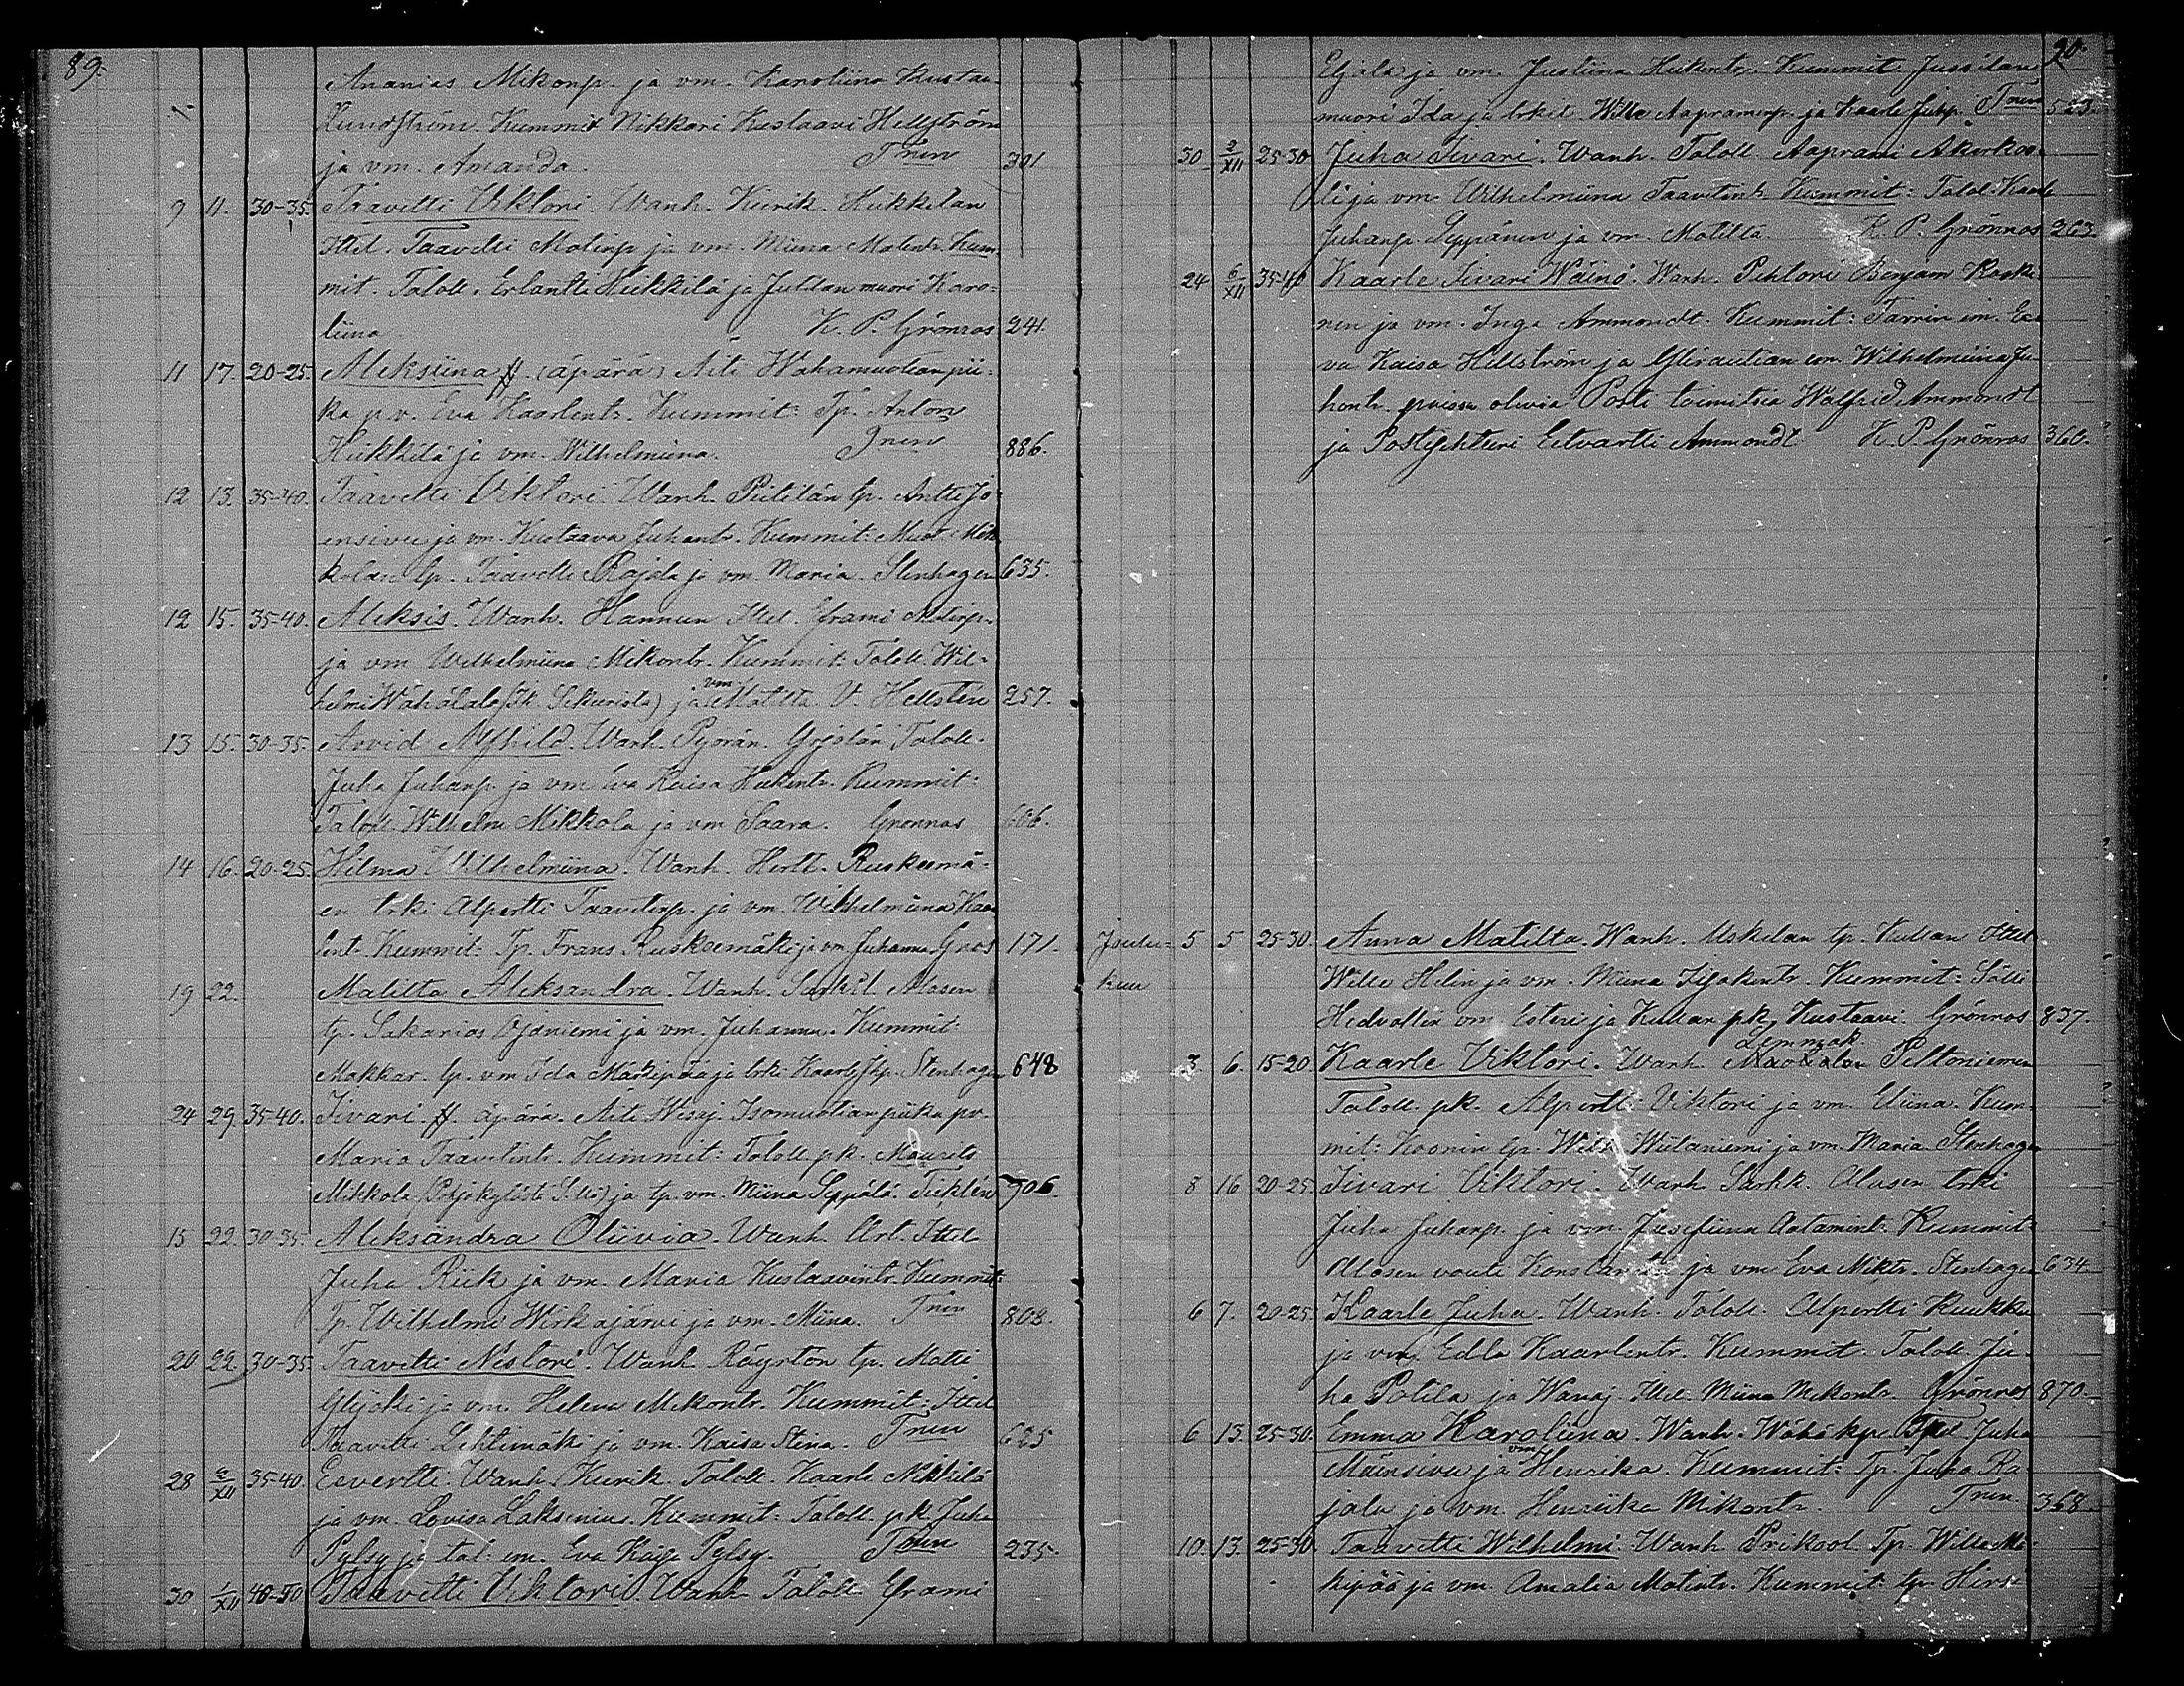 89.
Ananias Mikonp. ja vm. Karoliina Kustaa-
Lundström. Kummit Nikkari Kustaavi Hellström
ja vm. Amanda. Tnen 301
9 11. 30-35. Taavetti Viktori. Wanh. Kiurik. Heikkilän
Ittel. Taavetti Matinp. ja vm. Miina Matintr. Kum-
mit. Taloll. Erlantti Heikkilä ja Jullan muori Karo-
liina K. P. Grönroos 241.
11 17. 20-25. Aleksiina ff. (äpärä) Äiti Wahamuotian pii-
ka p v. Eva Kaarlentr. Kummit: Tp. Anton
Heikkilä ja vm. Wilhelmiina. Tnen 886.
12 13. 35-40. Taavetti Viktori. Wanh. Piitilän tp. Antti Jo-
ensivu ja vm. Kustaava Juhantr. Kummit: Muot. Mik-
kolan tp. Taavetti Rajala ja vm. Maria. Stenhagen 635.
12 15. 35-40. Aleksis. Wanh. Hannun Ittel. Frami Matinp.
ja vm Wilhelmiina Mikontr. Kummit: Taloll. Wil-
helmi Wähätalo (Ik. Sekurista) ja vm Matilta. V. Hellstén 257.
13 15. 30-35. Arvid Alfhild. Wanh. Pyörän. Yrjölän Taloll.
Juha Juhanp. ja vm Eva Kaisa Heikintr. Kummit:
Taloll. Wilhelm Mikkola ja vm Saara. Grönroos 606.
14 16. 20-25. Hilma Wilhelmiina. Wanh. Hertt. Ruskeemä-
en trki Alpertti Taavetinp. ja vm. Wilhelmiina Kaar-
lent. Kummit: Tp. Frans Ruskeemäki ja vm Juhanna. Groos 171.
19 22. Matilta Aleksandra. Wanh. Sarkil Alasen
tp. Sakarias Ojaniemi ja vm. Juhanna. Kummit:
Makkar. tp. vm Ida Märkipää ja trki Kaarle Jhp. Stenhagen 648
24 29. 35-40. Iivari. ff. äpärä. Äiti Wesaj. Isomuotian piika pv.
Maria Taavetintr. Kummit: Taloll. pk. Maurits
Mikkola (Pohjakylästä S:llä) ja tp. vm. Miina Seppälä. Ticklén 906.
15 22. 30-35. Aleksandra Oliivia. Wanh. Urt. Ittel
Juha Riik ja vm. Maria Kustaavintr. Kummit:
Tp. Wilhelmi Wirkajärvi ja vm. Miina. Tnen 808.
20 22. 30-35. Taavetti Nestori. Wanh. Räyrtön tp. Matti
Ylijoki ja vm. Helena Mikontr. Kummit: Ittel
Taavetti Lehtimäki ja vm. Kaisa Stina. Tnen 625
28 2/XII 35-40. Eevertti. Wanh. Kiurik. Taloll. Kaarle Nikkilä
ja vm. Lovisa Laksenius. Kummit: Taloll. pk. Juha
Pylsy ja tal: em. Eva Kaisa Pylsy. Tnen 235.
30 1/XII 40-50 Taavetti Viktori. Wanh. Taloll. Eframi
90.
Ejala ja vm. Justiina Heikintr. Kummit: Jussilan
muori Ida ja trkit Wille Aapraminp. ja Kaarle Juhp. Tnen 523.
30 2/XII 25-30 Juha Iivari. Wanh. Taloll. Aaprami Akorkoo-
li ja vm. Wilhelmiina Taavetintr. Kummit: Taloll: Kaarle
Juhanp. Seppänen ja vm. Matilta. K. P. Grönroos 263.
24 6/XII 35-40 Kaarle Iivari Wäinö. Wanh. Pehtori Benjam Koski-
nen ja vm. Inga Ammondt. Kummit: Färrin em. Ee-
va Kaisa Hellström ja Ylirautian em. Wilhelmiina Ju-
hontr. poissa olevia Posti toimitsia Walfrid Ammondt
ja Postiehturi Eetvartti Ammondt K. P. Grönroos 360.
Joulu-
kuu
5 5 25-30. Anna Matilta. Wanh. Uskilan tp. Kullan Ittel
Wille Helin ja vm. Miina Isjakintr. Kummit: Sälli
Hedvallin vm Esteri ja Kullan pk. Kustaavi. Grönroos 837.
3. 6. 15-20 Kaarle Viktori. Wanh. Lemmak. Peltoniemen
Taloll. pk. Alpertti Viktori ja vm. Eliina. Kum-
mit: Koonin tp. Wilh. Wiitaniemi ja vm. Maria. Stenhagen
8 16 20-25. Iivari Viktori. Wanh. Sarkk. Alasen trki
Juha Juhanp. ja vm. Josefiina Aatamint: Kummit:
Alasen vouti Konstantin ja vm Eva Miktr. Stenhagen 634
6 7. 20-25. Kaarle Juha. Wanh. Taloll. Alpertti Kuukka
ja vm. Edla Kaarlentr. Kummit. Taloll. Ju-
ha Potila ja Wanaj. Ittel. Miina Mikontr. Grönroos 870.
6 13. 25-30. Emma Karoliina. Wanh. Wähäkp. Ittel. Juha
Mäinsivu ja vm Henrika. Kummit: Tp. Juha Ra-
jala ja vm. Henriika Mikontr. Tnen. 368.
10. 13. 25-30. Taavetti Wilhelmi. Wanh. Prikool. Tp. Wille Mä-
kipää ja vm Amalia Matintr. Kummit: tp. Hirs-